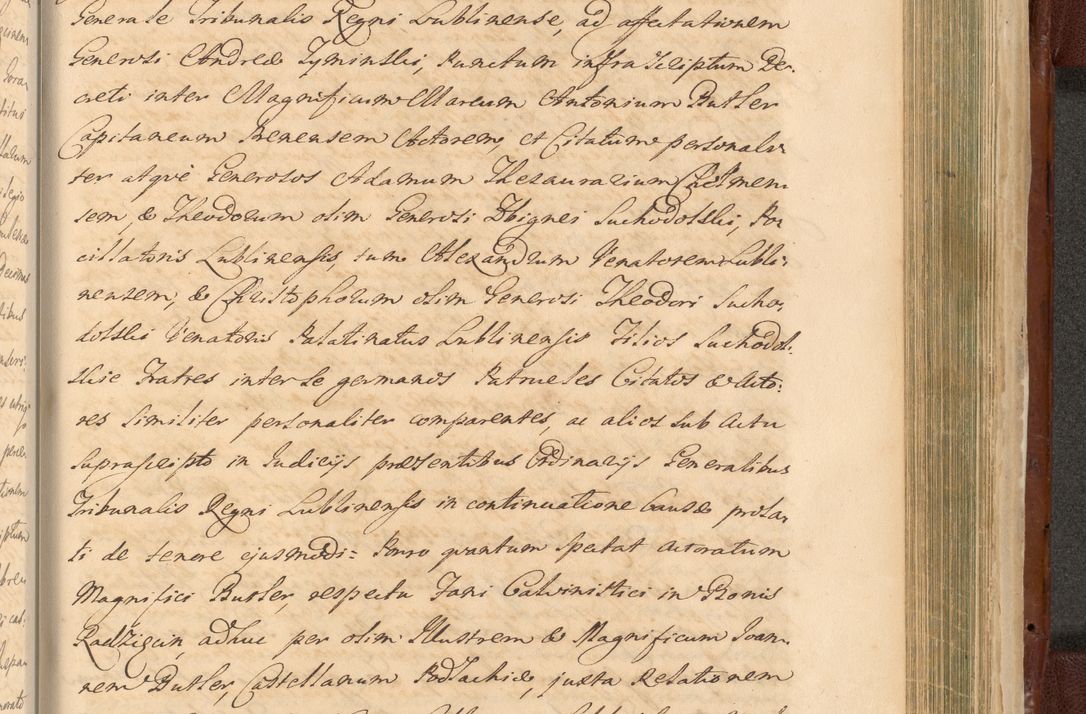 Generale Tribunalis Regni Lublinense, ad affectationem
Generosi Andreæ Tyminski, Punctum infrascriptum De-
creti inter Magnificum Marcum Antonium Butler
Capitaneum Prenensem Actorem, et Citatum personali-
ter atqve Generosos Adamum Thesaurarium Chelmen
sem, & Theodorum olim Generosi Zbignei Suchodolski, Po-
cillatoris Lublinensis, tum Alexandrum Venatorem Lubli-
nensem, & Christophorum olim Generosi Theodori Sucho-
dolski Venatoris Palatinatus Lublinensis Filios Suchodol-
skie Fratres inter se germanos Patrueles Citatos & Acto-
res similiter personaliter comparentes, ac alios sub Actu
suprascripto in Judicijs præsentibus Ordinarijs Generalibus
Tribunalis Regni Lublinensis in continuatione Causæ prola-
ti de tenore ejusmodi: Porro qvantum spectat Actoratum
Magnifici Butler, respectu Fani Calvinistici in Bonis
Radzięcin, adhuc per olim Illustrem & Magnificum Joan-
nem Butler, Castellanum Podlachiæ, juxta Relationem